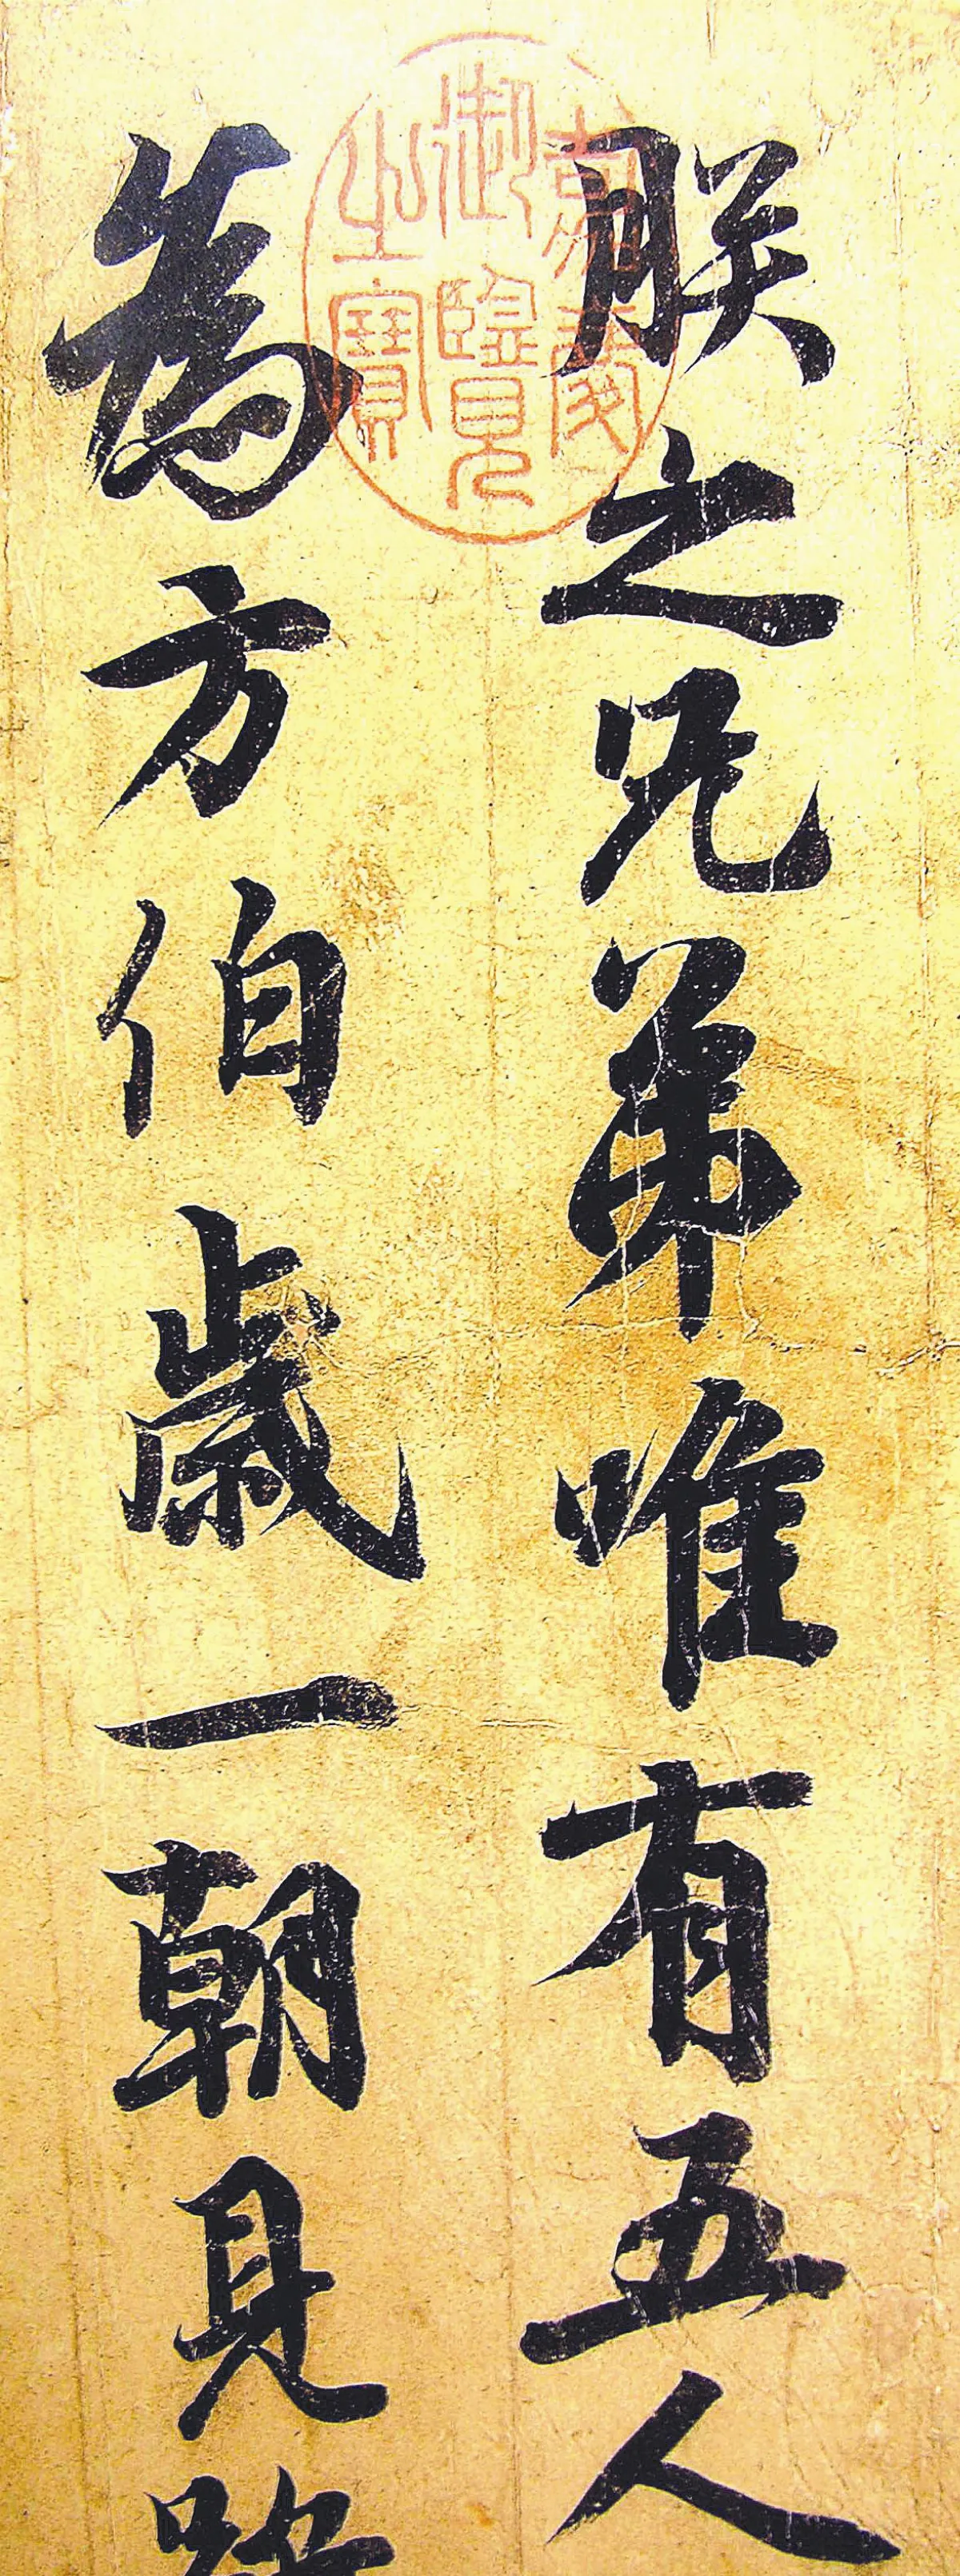 朕之兄弟唯有五人
為方伯歲一朝見雖
嘉慶
御覽
之寶